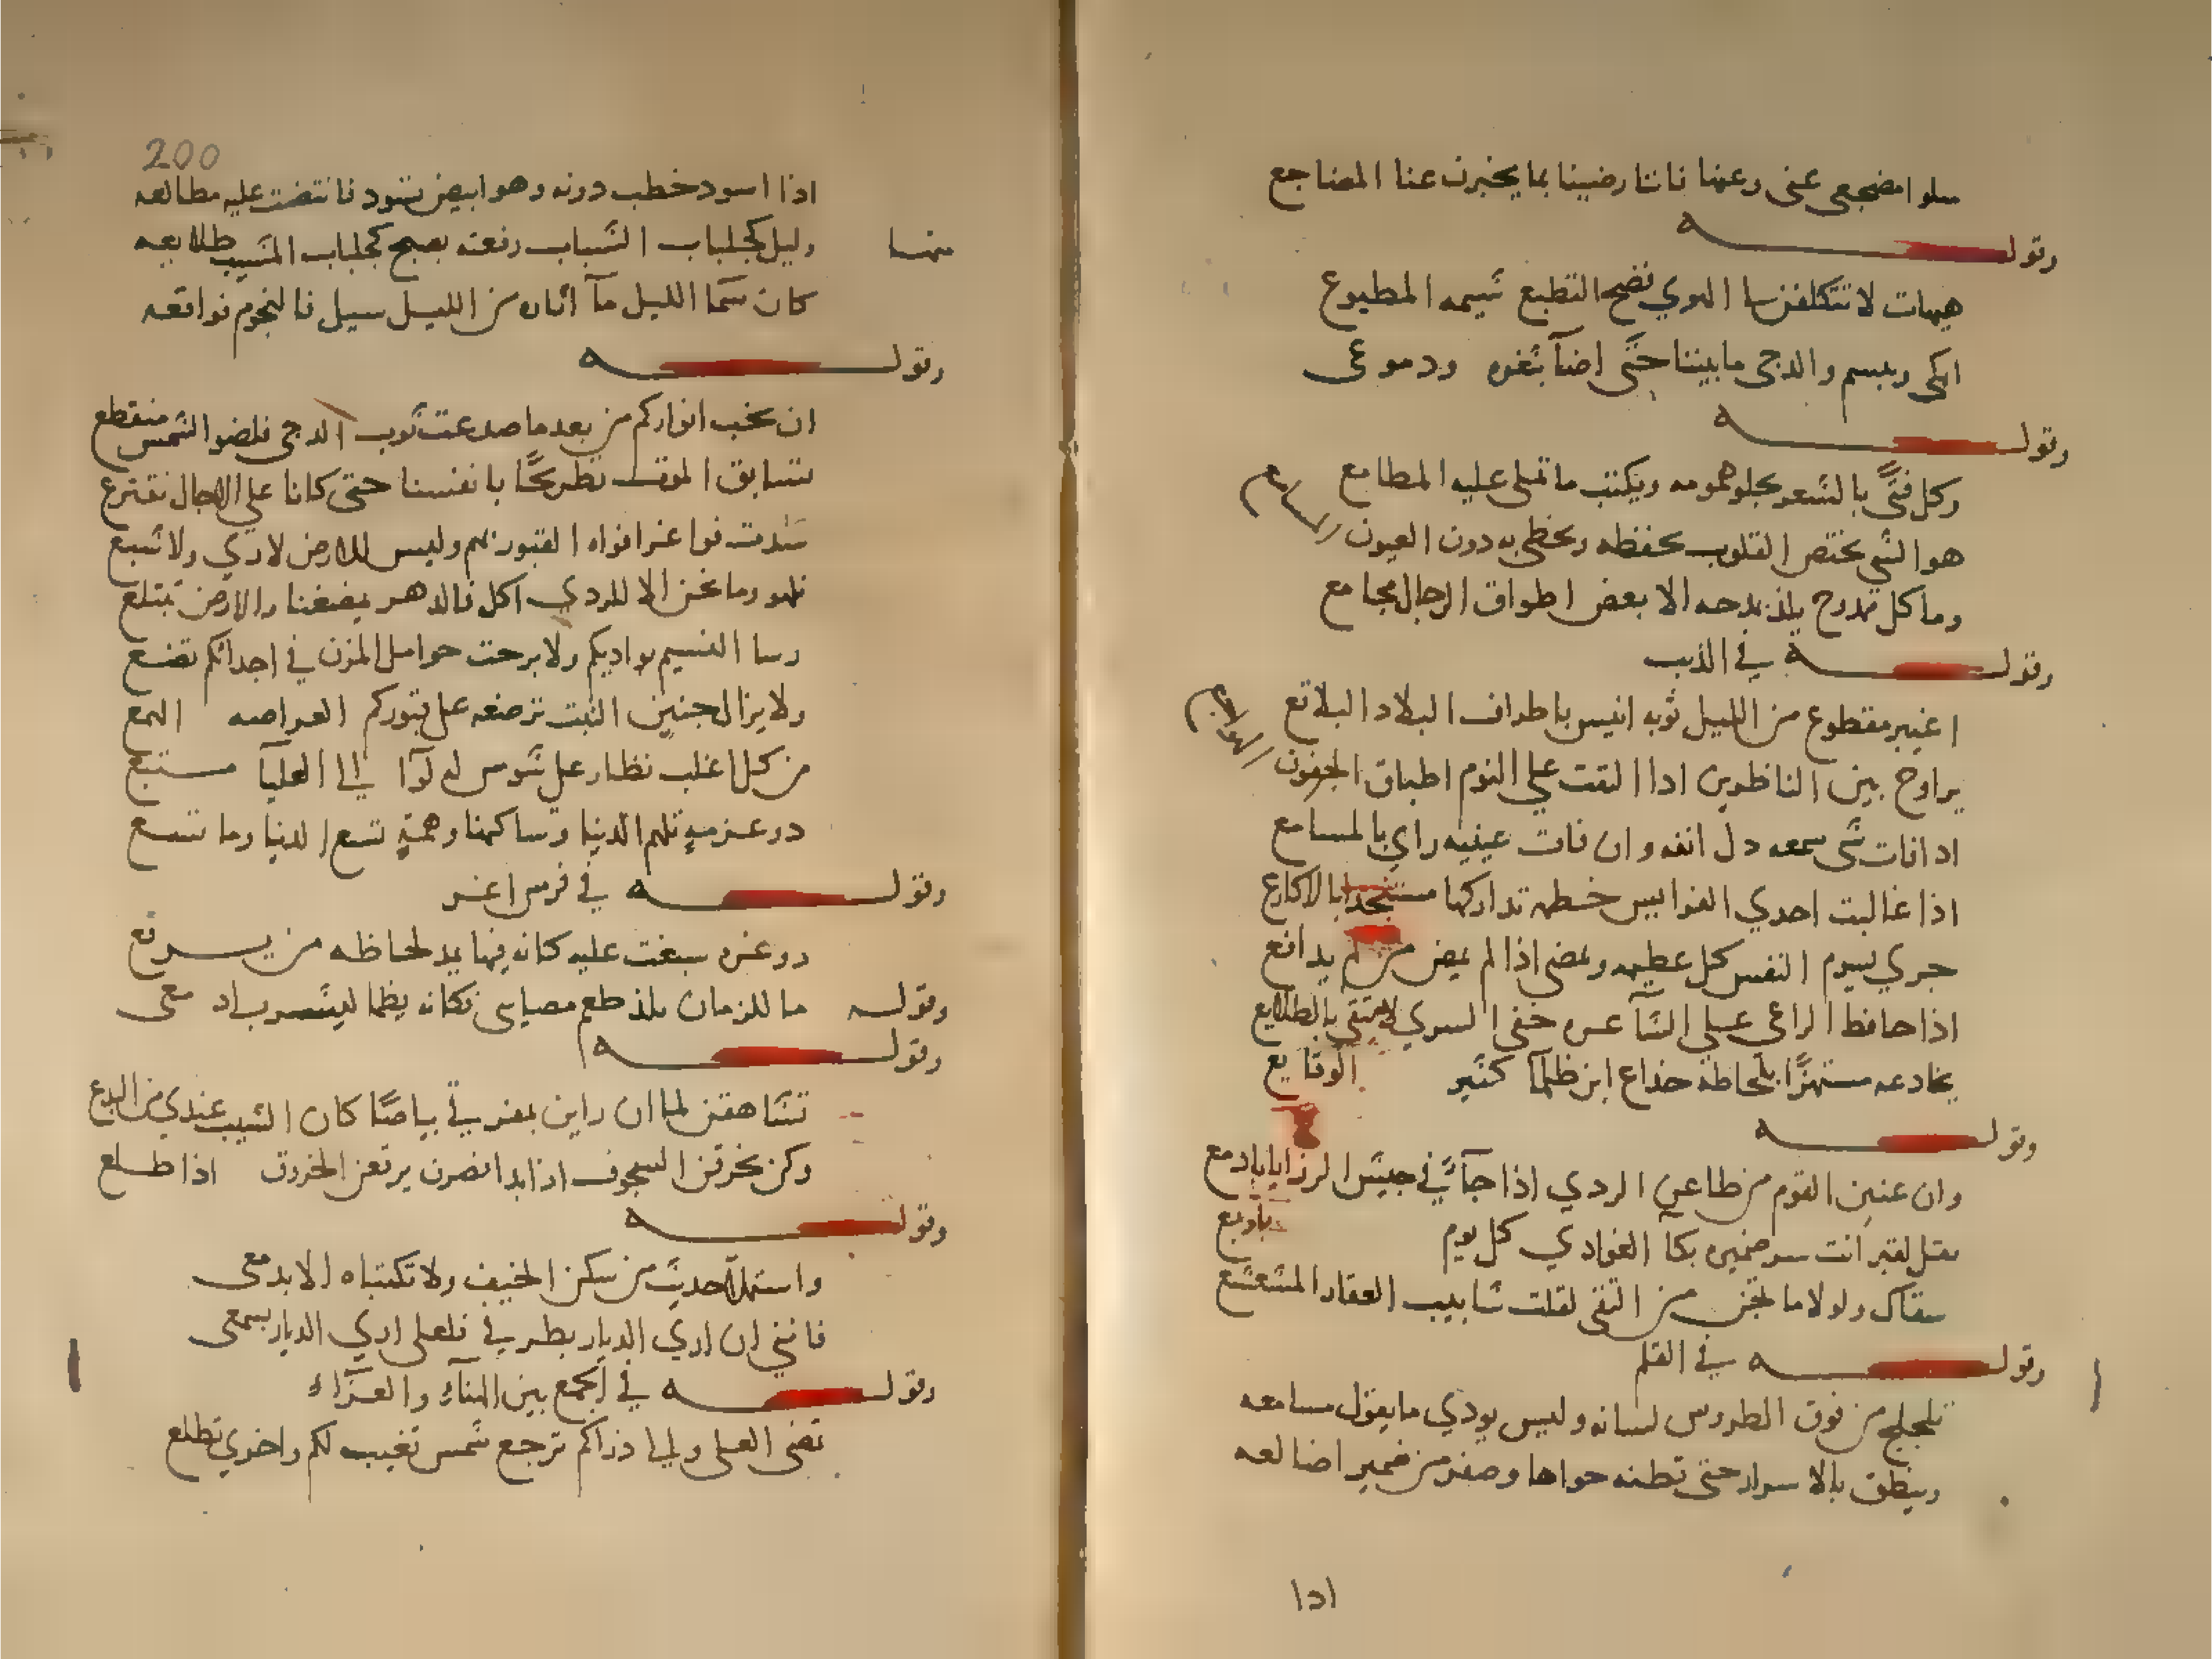 سلوا مضجعى عنى وعنها فاننا رضينا بما يخبرن عنا المضاجع
وقوله
هيهات لا تتكلفن لنا الهوي فضح التطبع شيمه المطبوع
ابكى ويبسم والدجى ما بيننا حتى اضآ بثغره ودموعى
وقوله
وكل فتًى بالشعر يجلو همومه ويكتب ما تملى عليه المطامع
هو الشى يختص القلوب بحفظه ويخظى به دون العيون المسامع
وما كل ممدوح يلذ بمدحه الا بعض اطواق الرجال مجامع
وقوله في الذيب
اغيبر مقطوع من الليل ثوبه انيس باطراف البلاد البلاقع
يراوح بين الناظرين اذا التقت على النوم اطباق الجفون الهواجع
اذا فات شى سمعه دل انفه وان فات عينيه راي بالمسامع
اذا غالبت احدي الفرايس خطمه تداركها مستنجدا بالاكارع
جري يسوم النفس كل عظيمه ويمضى اذا لم يمض من لم يدافع
اذا حافظ الراعى على الشآ غره خفى السري لا يتقى بالطلايع
يخادعه مستهزًا بلحاظه خداع ابن ظلمآ كثير الوقايع
وقوله
وان عنين القوم من طاعن الردي اذا جآ في جيش الرزايا بادمع
فقل لقبر انت سر ضميره بكآ الغوادي كل يوم باربع
سقاك ولولا ما تجن من التقى لقلت شابيب العقار المشعشع
وقوله في القلم
تلجلج من فوق الطروس لسانه وليس يودي ما يقول مسامعه
وينطق بالاسرار حتى تظنه حواها وصفر من ضمير اضالعه
اذا
200
اذا اسود خطب دونه وهو ابيض تسود فانتضت عليه مطالعه
منها وليل كجلباب الشباب رفعته بصبح كجلباب المشيب طلايعه
كان سمآ الليل مآ اتاه من الليل سيل فالنجوم فواقعه
وقوله
ان تخب انواركم من بعد ما صدعت ثوب الدجى فلضو الشمس منقطع
تسابق الموت تطريحًا بانفسنا حتى كانا على الاجال نقترع
شدت فواغر افواه القبور بهم وليس للارض لا ري ولا شبع
نلهو وما نحن الا للردي اكل فالدهر يمضغنا والارض تبتلع
رسا النسيم بواديكم ولا برحت حوامل المزن في اجداثكم تضع
ولا يزال جنين النبت ترضعه على قبوركم العراصه الهمع
من كل اغلب نظار على شوس له لوآ الى العليآ مستبع
ذو عزمةٍ تلهم الدنيا وساكنها وهمةٍ تسع الدنيا وما تسع
وقوله في فرس اغر
ذو غره سبغت عليه كانه فيها يد لحاظه من يسرقع
وقوله ما للزمان يلذ طعم مصايبى فكانه يظما ليشرب ادمعى
وقوله
تشاهقن لما ان راين بمفرقي بياضًا كان الشيب عندي من البدع
وكن يخرقن السجوف اذا بدا فصرن يرقعن الخروق اذا طلع
وقوله
واستملا حديث من سكن الخيف ولا تكتباه الا بدمعى
فاتني ان اري الديار بطرفي فلعلى اري الديار بسمعى
وقوله في الجمع بين الهناء والعزاء
تمضى العلى والى ذراكم ترجع شمس تغيب لكم واخري تطلع